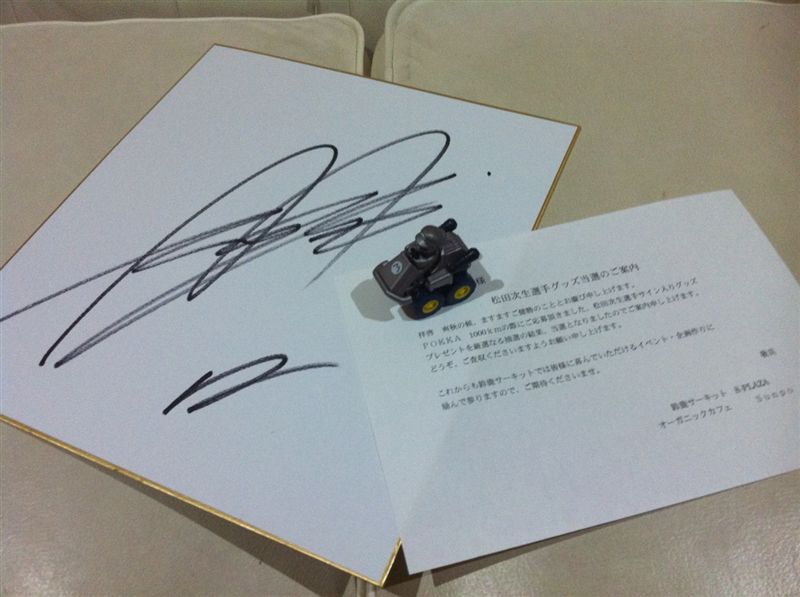 様
松田次生選手グッズ当選のご案内
拝啓　爽秋の候、ますますご健勝のこととお慶び申し上げます。
POKKA　1000kmの際にご応募頂きました、松田次生選手サイン入りグッズ
プレゼントを厳選なる抽選の結果、当選となりましたのでご案内申し上げます。
どうぞ、ご査収くださいますようお願い申し上げます。
これからも鈴鹿サーキットでは皆様に喜んでいただけるイベント・企画作りに
励んで参りますので、ご期待くださいませ。
敬具
鈴鹿サーキット　S-PLAZA
オーガニックカフェ